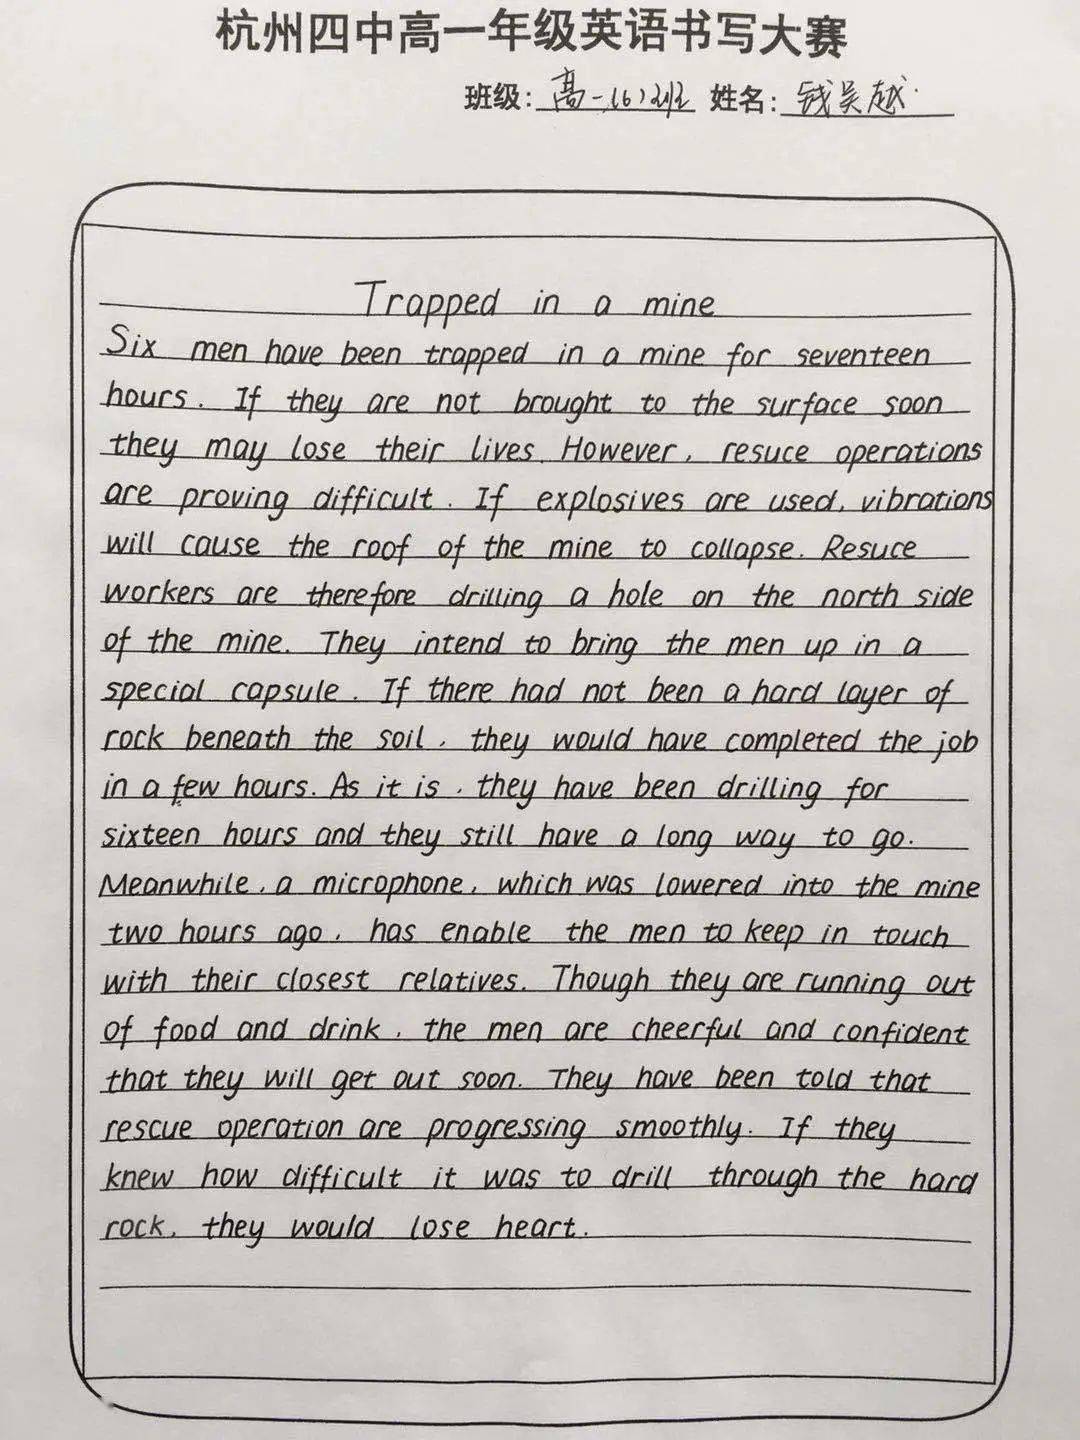 杭州四中高一年级英语书写大赛
班级: 高一(6)班 姓名: 钱吴越
Trapped in a mine
Six men have been trapped in a mine for seventeen
hours. If they are not brought to the surface soon
they may lose their lives. However, resuce operations
are proving difficult. If explosives are used, vibrations
will cause the roof of the mine to collapse. Resuce
workers are therefore drilling a hole on the north side
of the mine. They intend to bring the men up in a
special capsule. If there had not been a hard layer of
rock beneath the soil, they would have completed the job
in a few hours. As it is, they have been drilling for
sixteen hours and they still have a long way to go.
Meanwhile, a microphone, which was lowered into the mine
two hours ago, has enable the men to keep in touch
with their closest relatives. Though they are running out
of food and drink, the men are cheerful and confident
that they will get out soon. They have been told that
rescue operation are progressing smoothly. If they
knew how difficult it was to drill through the hard
rock, they would lose heart.